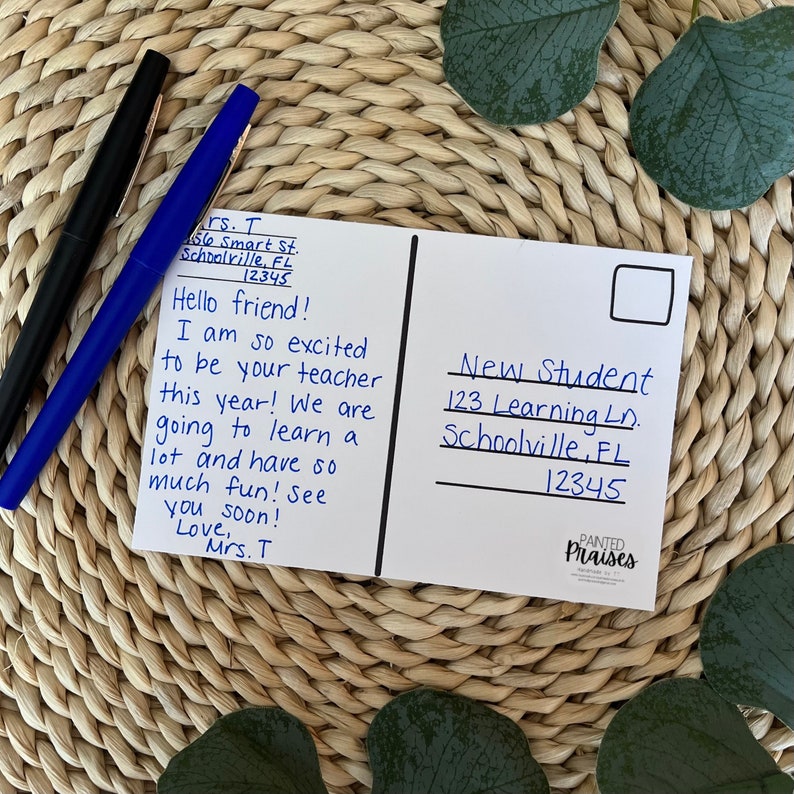 Mrs. T
456 Smart St.
Schoolville, FL
12345
Hello friend!
I am so excited
to be your teacher
this year! We are
going to learn a
lot and have so
much fun! See
you soon!
Love,
Mrs. T
New Student
123 Learning Ln.
Schoolville, FL
12345
PAINTED
Praises